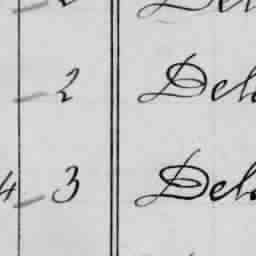 2 Del
4 3 Del